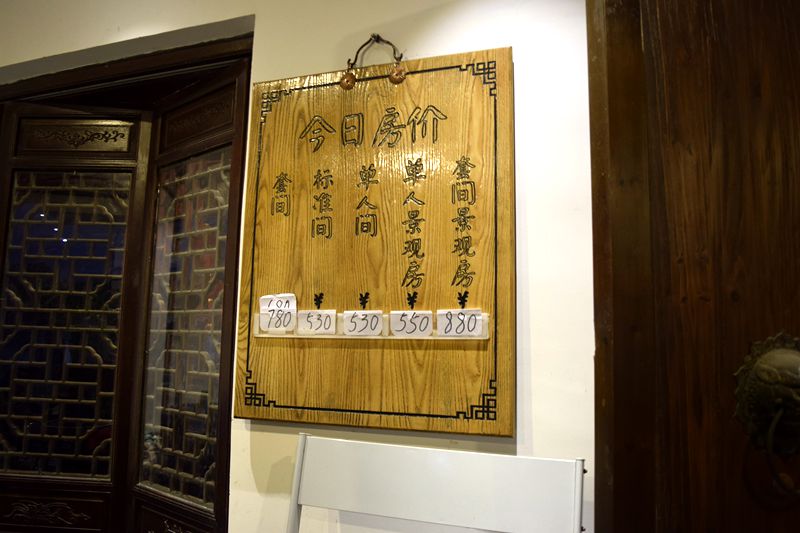 今日房价
套间
标准间
单人间
单人景观房
套间景观房
¥ ¥ ¥ ¥
680
780 530 530 550 880